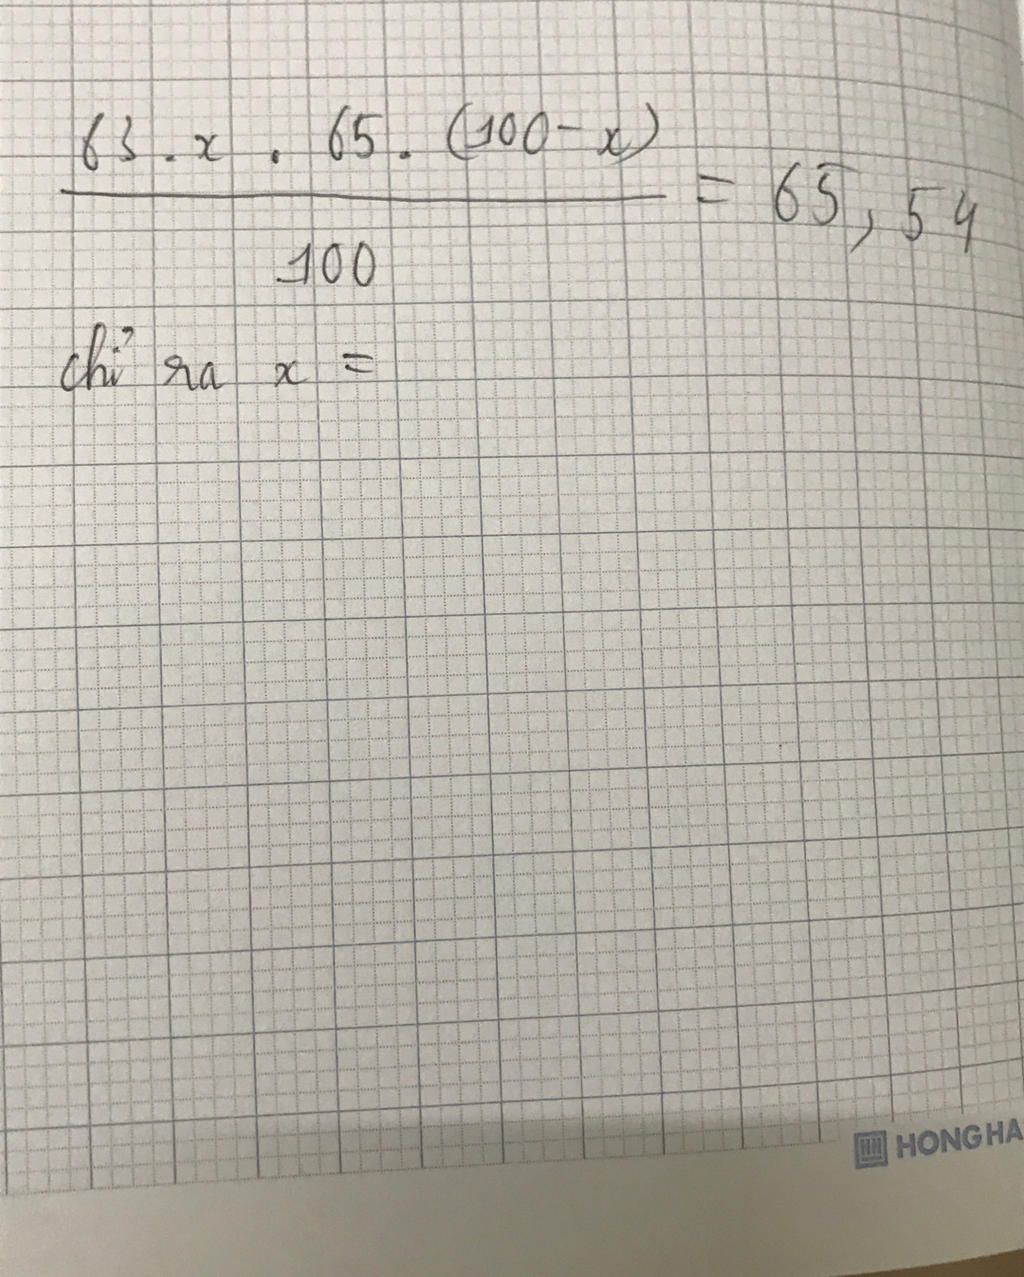 63 . x . 65 . (100 - x)
100
= 65,54
chỉ ra x =
HONG HA